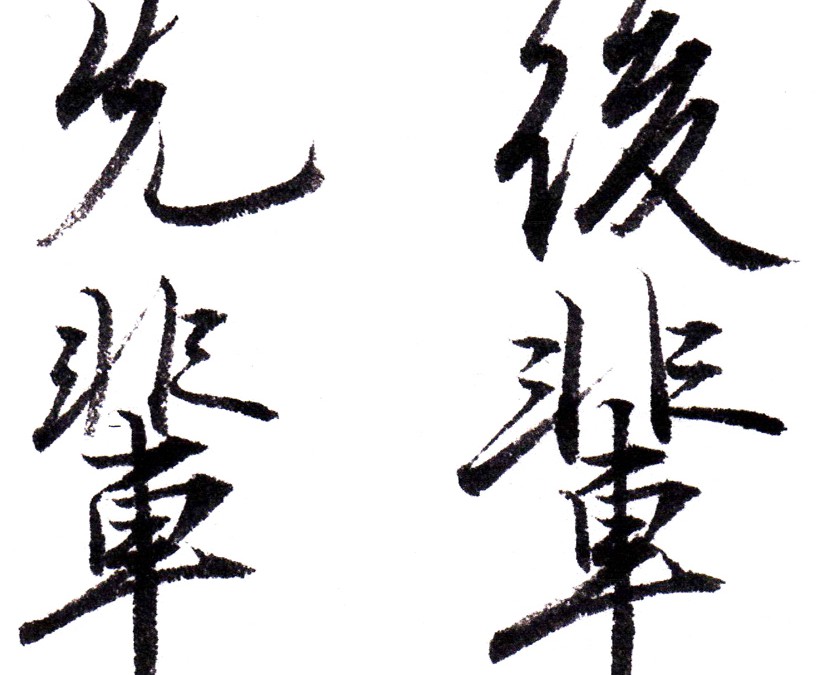 後輩
先輩